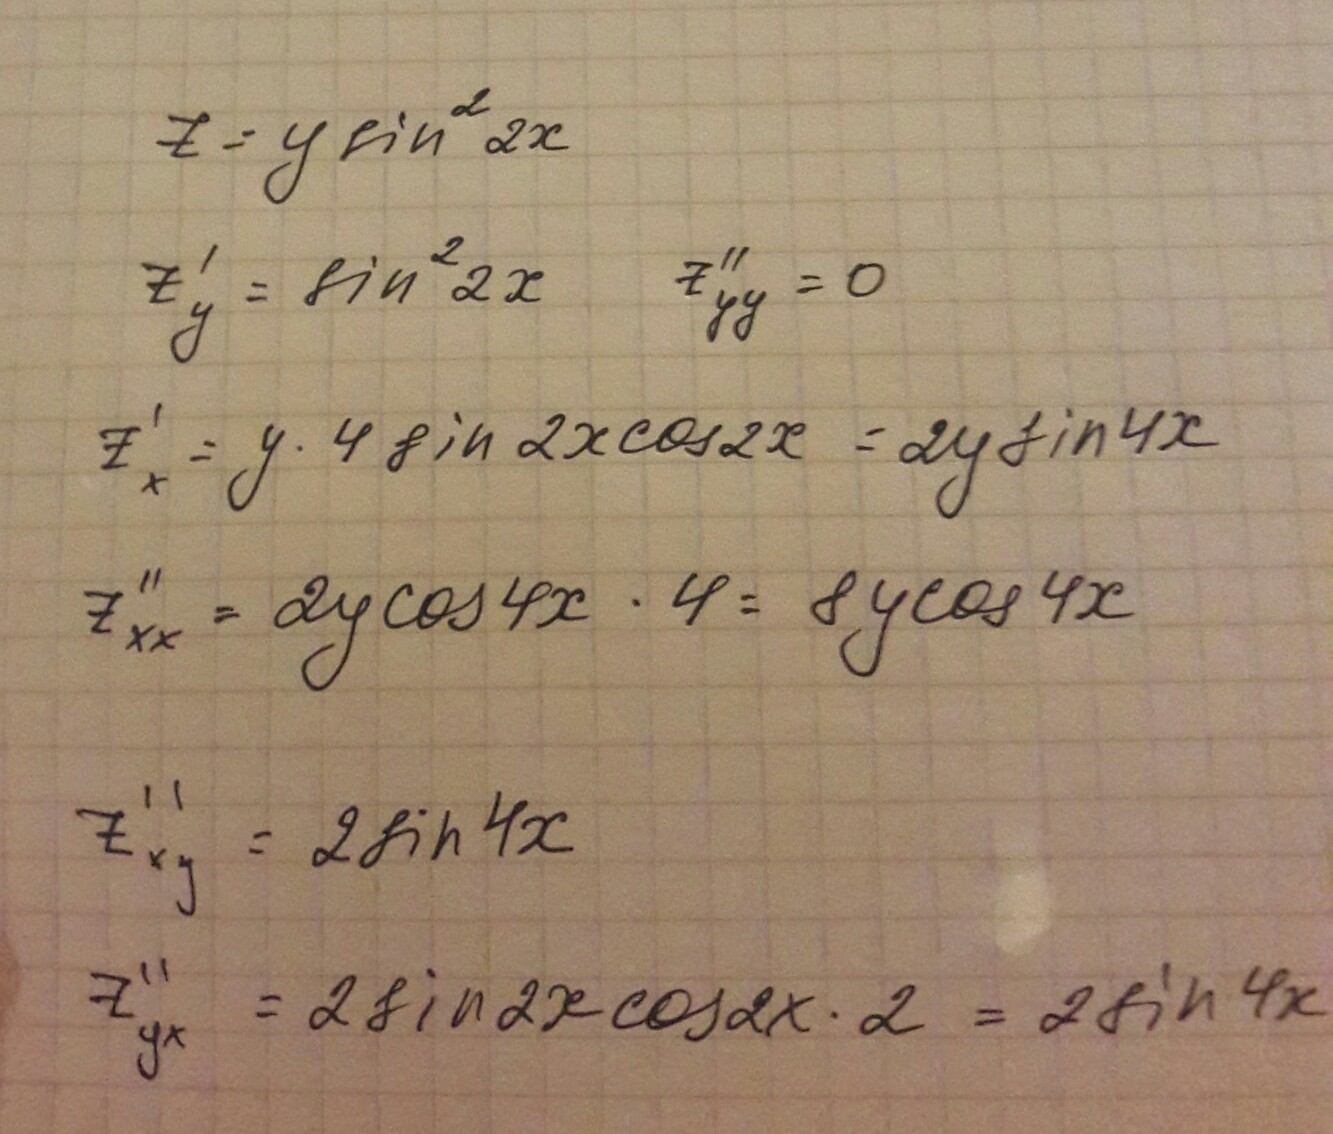 z = y sin² 2x
z'y = sin² 2x z''yy = 0
z'x = y · 4 sin 2x cos 2x = 2y sin 4x
z''xx = 2y cos 4x · 4 = 8y cos 4x
z''xy = 2 sin 4x
z''yx = 2 sin 2x cos 2x · 2 = 2 sin 4x